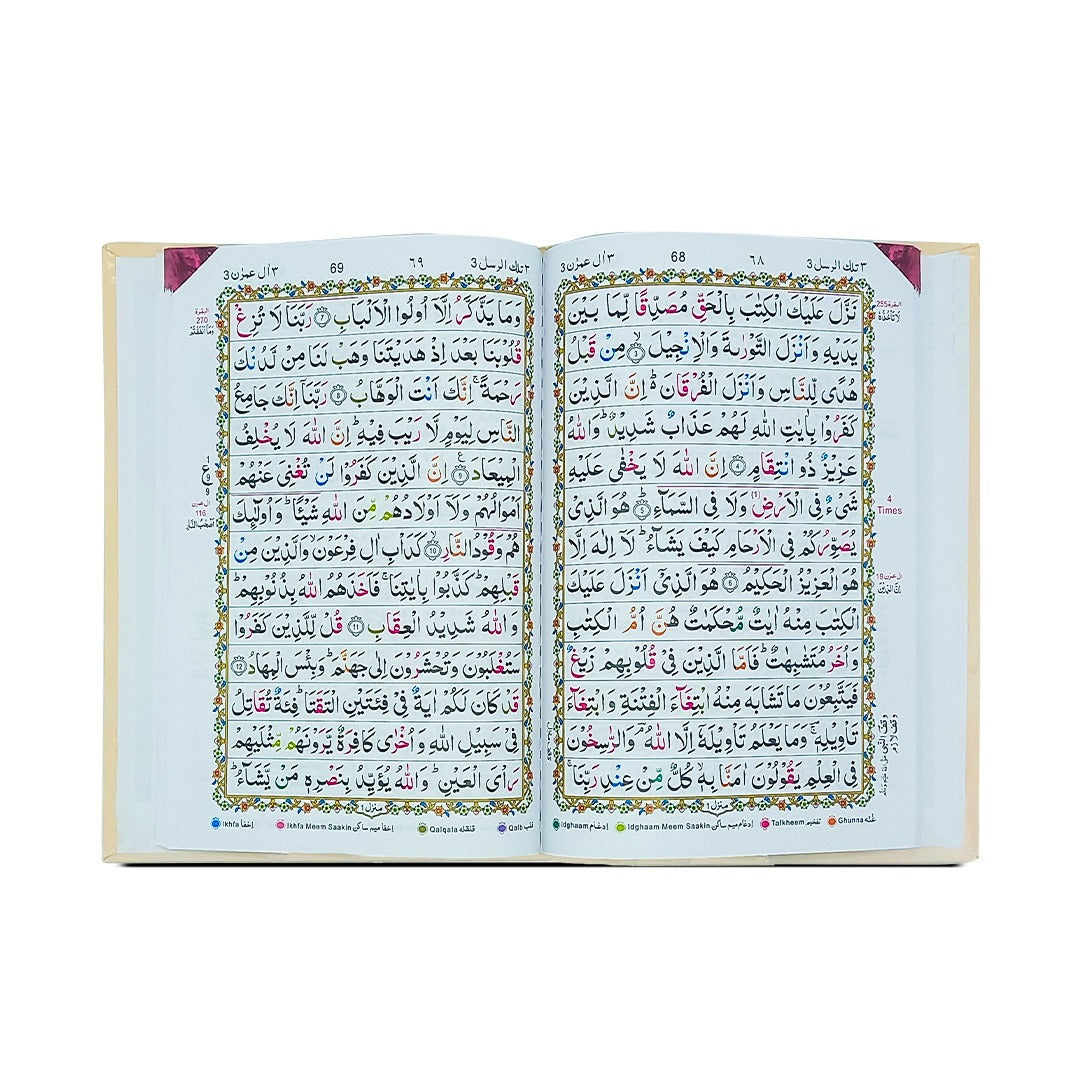 ٣ تلك الرسل 3
٦٨
68
٣ اٰل عمرٰن 3
نَزَّلَ عَلَيْكَ الْكِتٰبَ بِالْحَقِّ مُصَدِّقًا لِّمَا بَيْنَ
يَدَيْهِ وَاَنْزَلَ التَّوْرٰىةَ وَالْاِنْجِيْلَ ۙ‏ ﴿3﴾ مِنْ قَبْلُ
هُدًى لِّلنَّاسِ وَاَنْزَلَ الْفُرْقَانَ ؕ اِنَّ الَّذِيْنَ
كَفَرُوْا بِاٰيٰتِ اللّٰهِ لَهُمْ عَذَابٌ شَدِيْدٌ ؕ وَاللّٰهُ
عَزِيْزٌ ذُو انْتِقَامٍ ﴿4﴾ اِنَّ اللّٰهَ لَا يَخْفٰى عَلَيْهِ
شَىْءٌ فِى الْاَرْضِ (1) وَلَا فِى السَّمَآءِ ؕ ﴿5﴾ هُوَ الَّذِىْ
يُصَوِّرُكُمْ فِى الْاَرْحَامِ كَيْفَ يَشَآءُ ؕ لَاۤ اِلٰهَ اِلَّا
هُوَ الْعَزِيْزُ الْحَكِيْمُ ﴿6﴾ هُوَ الَّذِىْۤ اَنْزَلَ عَلَيْكَ
الْكِتٰبَ مِنْهُ اٰيٰتٌ مُّحْكَمٰتٌ هُنَّ اُمُّ الْكِتٰبِ
وَاُخَرُ مُتَشٰبِهٰتٌ ؕ فَاَمَّا الَّذِيْنَ فِىْ قُلُوْبِهِمْ زَيْغٌ
فَيَتَّبِعُوْنَ مَا تَشَابَهَ مِنْهُ ابْتِغَآءَ الْفِتْنَةِ وَابْتِغَآءَ
تَاْوِيْلِهٖ ۚ وَمَا يَعْلَمُ تَاْوِيْلَهٗۤ اِلَّا اللّٰهُ ؔۘ وَالرّٰسِخُوْنَ
فِى الْعِلْمِ يَقُوْلُوْنَ اٰمَنَّا بِهٖ ۙ كُلٌّ مِّنْ عِنْدِ رَبِّنَا ۚ
منزل ١
البقرة 255
4
Times
اٰل عمرٰن 19
اِنَّ الدِّيْنَ
Idghaam ادغام
Idghaam Meem Saakin ادغام میم ساکن
Talkheem تفخیم
Ghunna غنّه
3 تلك الرسل ٣
٦٩
69
٣ اٰل عمرٰن 3
وَمَا يَذَّكَّرُ اِلَّاۤ اُولُوا الْاَلْبَابِ ﴿7﴾ رَبَّنَا لَا تُزِغْ
قُلُوْبَنَا بَعْدَ اِذْ هَدَيْتَنَا وَهَبْ لَنَا مِنْ لَّدُنْكَ
رَحْمَةً ۚ اِنَّكَ اَنْتَ الْوَهَّابُ ﴿8﴾ رَبَّنَاۤ اِنَّكَ جَامِعُ
النَّاسِ لِيَوْمٍ لَّا رَيْبَ فِيْهِ ؕ اِنَّ اللّٰهَ لَا يُخْلِفُ
الْمِيْعَادَ ﴿9﴾ اِنَّ الَّذِيْنَ كَفَرُوْا لَنْ تُغْنِىَ عَنْهُمْ
اَمْوَالُهُمْ وَلَاۤ اَوْلَادُهُمْ مِّنَ اللّٰهِ شَيْئًا ؕ وَاُولٰٓئِكَ
هُمْ وَقُوْدُ النَّارِ ۙ ﴿10﴾ كَدَاْبِ اٰلِ فِرْعَوْنَ ۙ وَالَّذِيْنَ مِنْ
قَبْلِهِمْ ؕ كَذَّبُوْا بِاٰيٰتِنَا ۚ فَاَخَذَهُمُ اللّٰهُ بِذُنُوْبِهِمْ ؕ
وَاللّٰهُ شَدِيْدُ الْعِقَابِ ﴿11﴾ قُلْ لِّلَّذِيْنَ كَفَرُوْا
سَتُغْلَبُوْنَ وَتُحْشَرُوْنَ اِلٰى جَهَنَّمَ ؕ وَبِئْسَ الْمِهَادُ ﴿12﴾
قَدْ كَانَ لَكُمْ اٰيَةٌ فِىْ فِئَتَيْنِ الْتَقَتَا ؕ فِئَةٌ تُقَاتِلُ
فِىْ سَبِيْلِ اللّٰهِ وَاُخْرٰى كَافِرَةٌ يَّرَوْنَهُمْ مِّثْلَيْهِمْ
رَاْىَ الْعَيْنِ ؕ وَاللّٰهُ يُؤَيِّدُ بِنَصْرِهٖ مَنْ يَّشَآءُ ؕ
منزل ١
البقرة
270
ع
9
اٰل عمرٰن
116
اَصْحٰبُ النَّار
Ikhfa اخفا
Ikhfa Meem Saakin اخفا میم ساکن
Qalqala قلقله
Qalb قلب